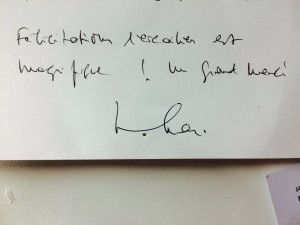 Félicitations l'escalier est
magnifique ! Un grand merci